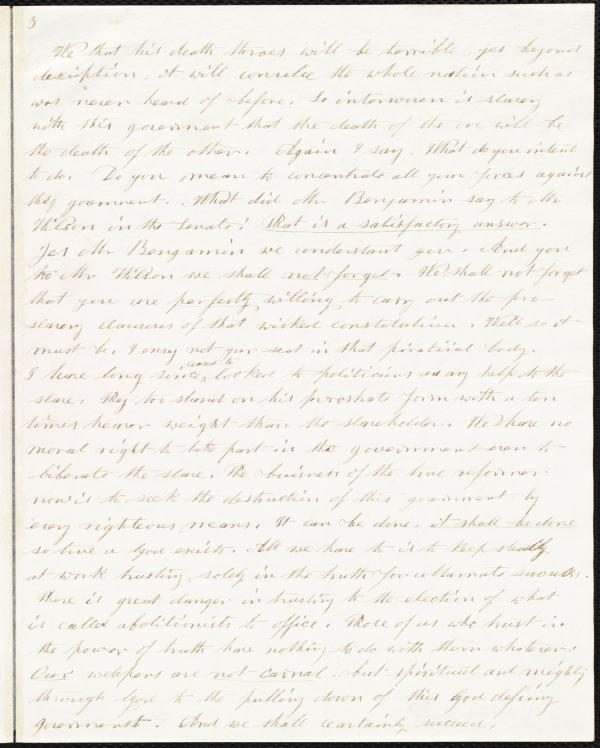 3
We that his death throes will be terrible, yes beyond
description, it will convulse the whole nation such as
was never heard of before. So interwoven is slavery
with this government that the death of the one will be
the death of the other. Again I say. What do you intend
to do. Do you mean to concentrate all your forces against
the government. What did Mr Benjamin say to Mr
Wilson in the Senate? That is a satisfactory answer.
Yes Mr Benjamin we understand you. And you
too Mr Wilson we shall not forget. We shall not forget
that you are perfectly willing to carry out the pro-
slavery clauses of that wicked constitution. Well so it
must be. I envy not your seat in that piratical body.
I have long since ceased to looked to politicians as any help to the
slave. They too stand on his prostrate form with a ten
times heavier weight than the slaveholder. We have no
moral right to take part in the government even to
liberate the slave. The buisness of the true reformer
now is to seek the destruction of this government by
every righteous means. It can be done. it shall be done
so true a God exists. All we have to is to keep steadily
at work trusting solely in the truth for ultamate success.
There is great danger in trusting to the election of what
is called abolitionists to office. Those of us who trust in
the power of truth have nothing to do with them whatever.
Our weapons are not carnal. but spiritual and mighty
through God to the pulling down of this God defying
government. And we shall certainly succeed.